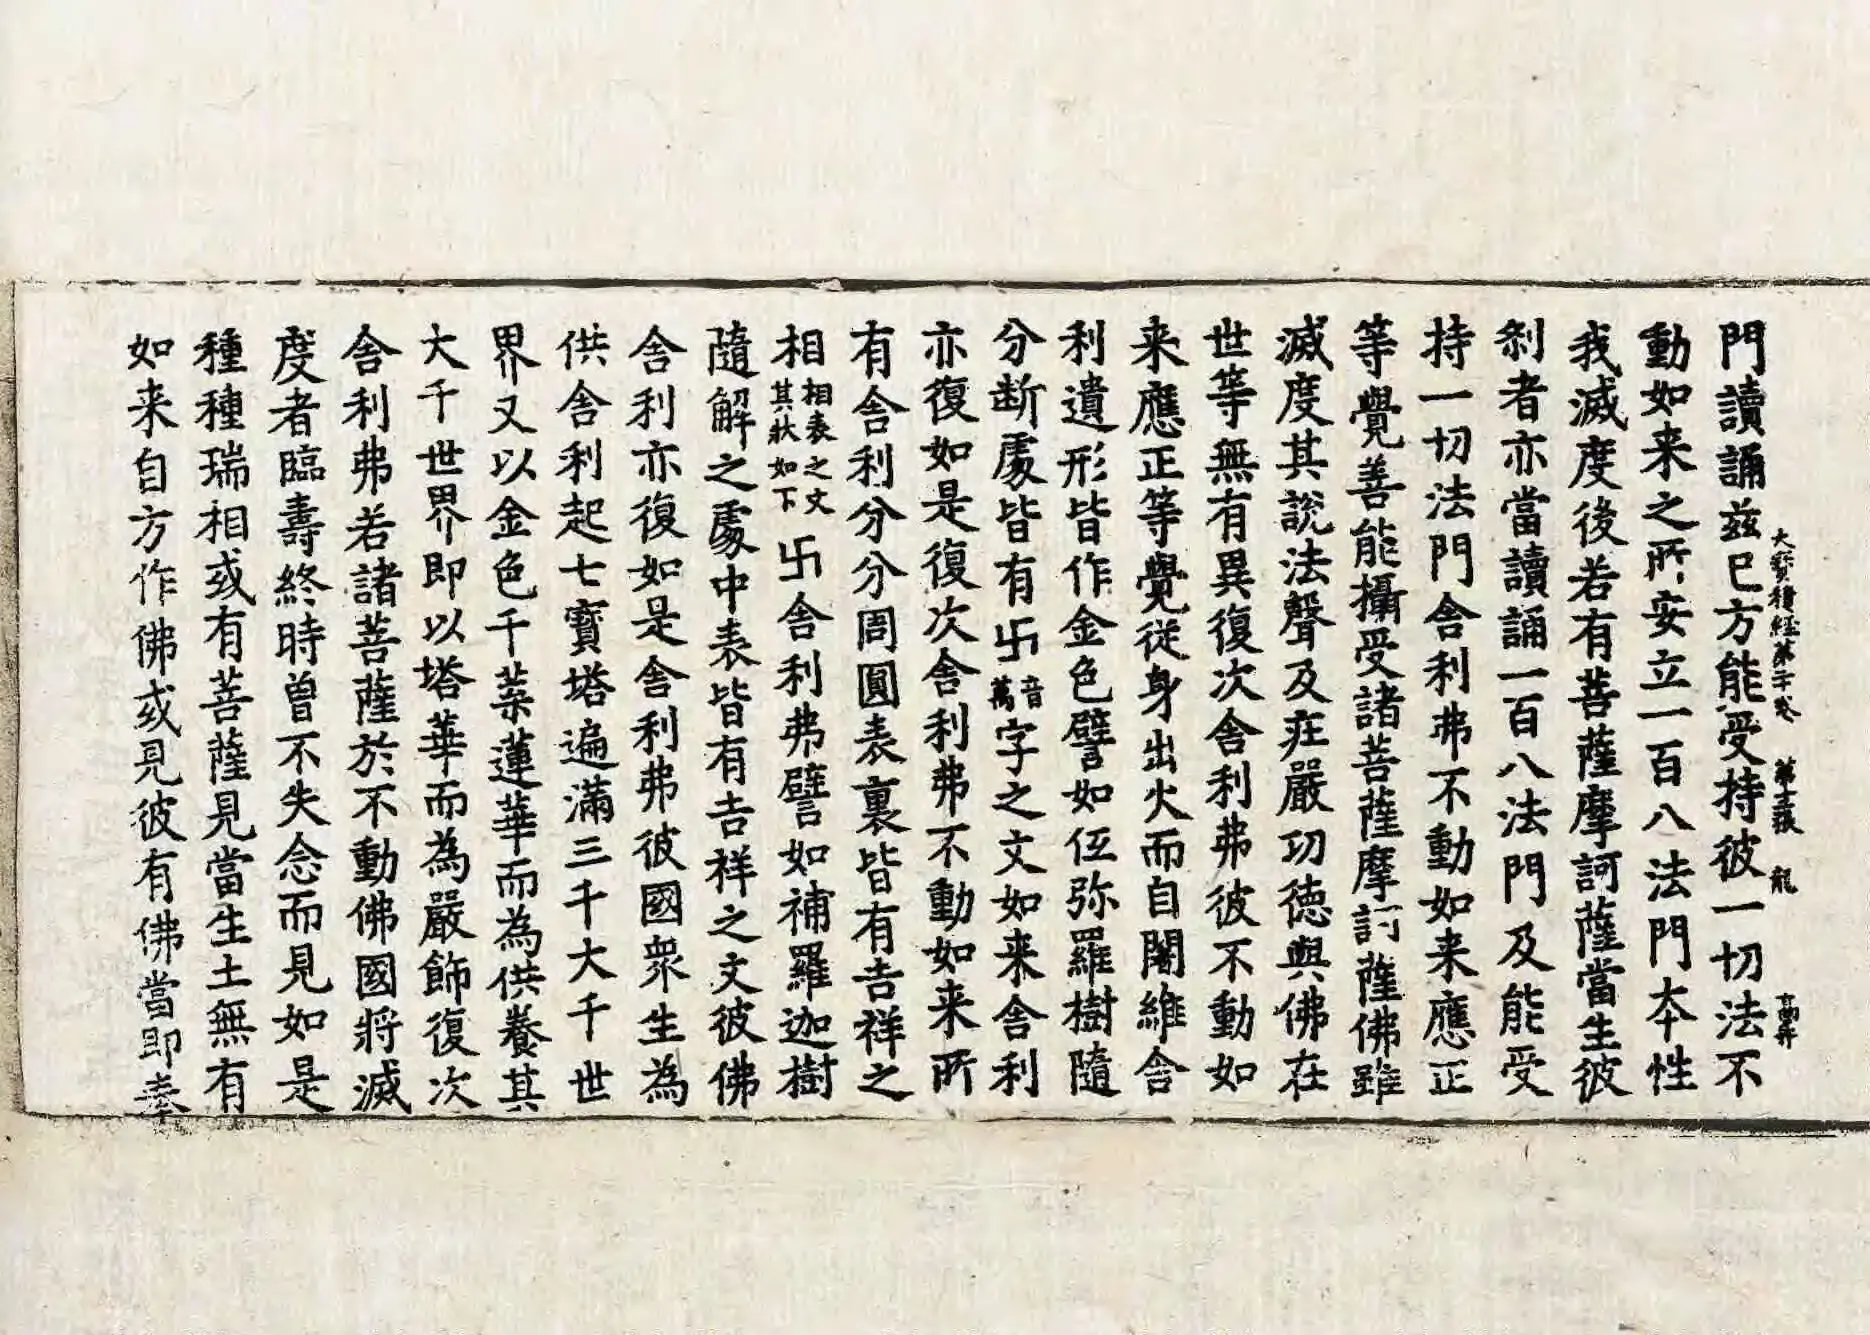 門讀誦兹已方能受持彼一切法不
大寳積經第二十卷 第十三張 龍 高弁
動如来之所安立一百八法門本性
我滅度後若有菩薩摩訶薩當生彼
刹者亦當讀誦一百八法門及能受
持一切法門舎利弗不動如来應正
等覺善能攝受諸菩薩摩訶薩佛雖
滅度其說法聲及㽵嚴功德與佛在
世等無有異復次舎利弗彼不動如
来應正等覺従身出火而自闍維舎
利遺形皆作金色譬如伍弥羅樹隨
分断處皆有卐音萬字之文如来舎利
亦復如是復次舎利弗不動如来所
有舎利分分周圓表裏皆有吉祥之
相相表之文其狀如下卐舎利弗譬如補羅迦樹
隨解之處中表皆有吉祥之文彼佛
舎利亦復如是舎利弗彼國衆生為
供舎利起七寳塔遍滿三千大千世
界又以金色千葉蓮華而為供養其
大千世界即以塔華而為嚴飾復次
舎利弗若諸菩薩於不動佛國將滅
度者臨壽終時曽不失念而見如是
種種瑞相或有菩薩見當生土無有
如来自方作佛或見彼有佛當即奉